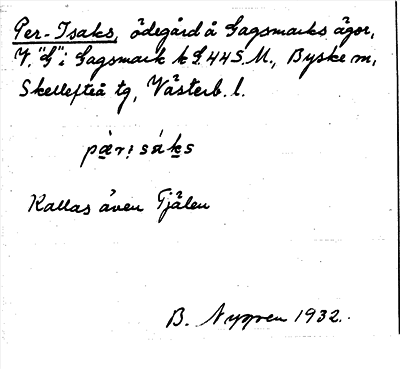 Per-Isaks, ödegård å Gagsmarks ägor,
V. "G" i Gagsmark k S.44 S.M., Byske m,
Skellefteå tg, Västerb. l.
pär! sáks
Kallas även Tjälen
B. Nygren 1932.